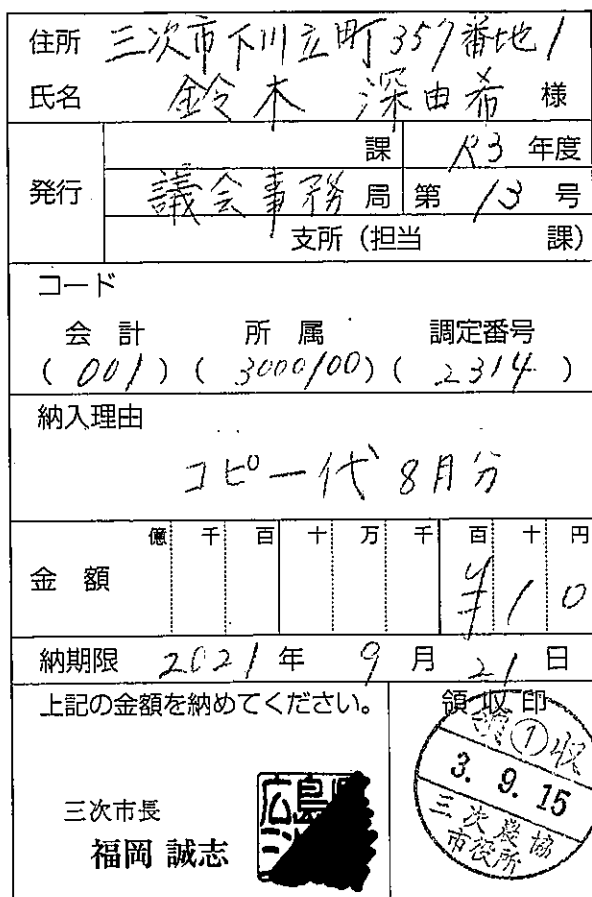 住所 三次市下川立町357番地1
氏名 鈴木 深由希 様
発行
課 R3 年度
議会事務局 第 13 号
支所(担当 課)
コード
会計 所属 調定番号
(001)(3000100)(2314)
納入理由
コピー代 8月分
億 千 百 十 万 千 百 十 円
金額 ¥10
納期限 2021年 9月 21日
上記の金額を納めてください。
領収印
領①収
3. 9. 15
三次農協
市役所
三次市長
福岡 誠志
広島